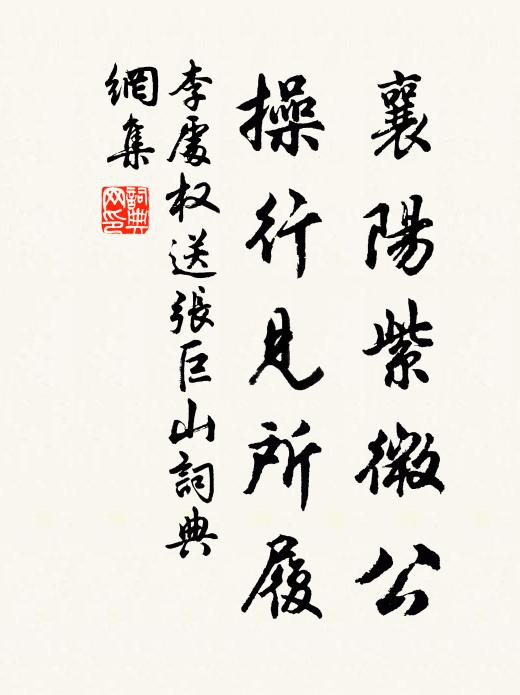 襄陽紫微公
操行見所履
李處权送張巨山詞典
網集
詞典
网印